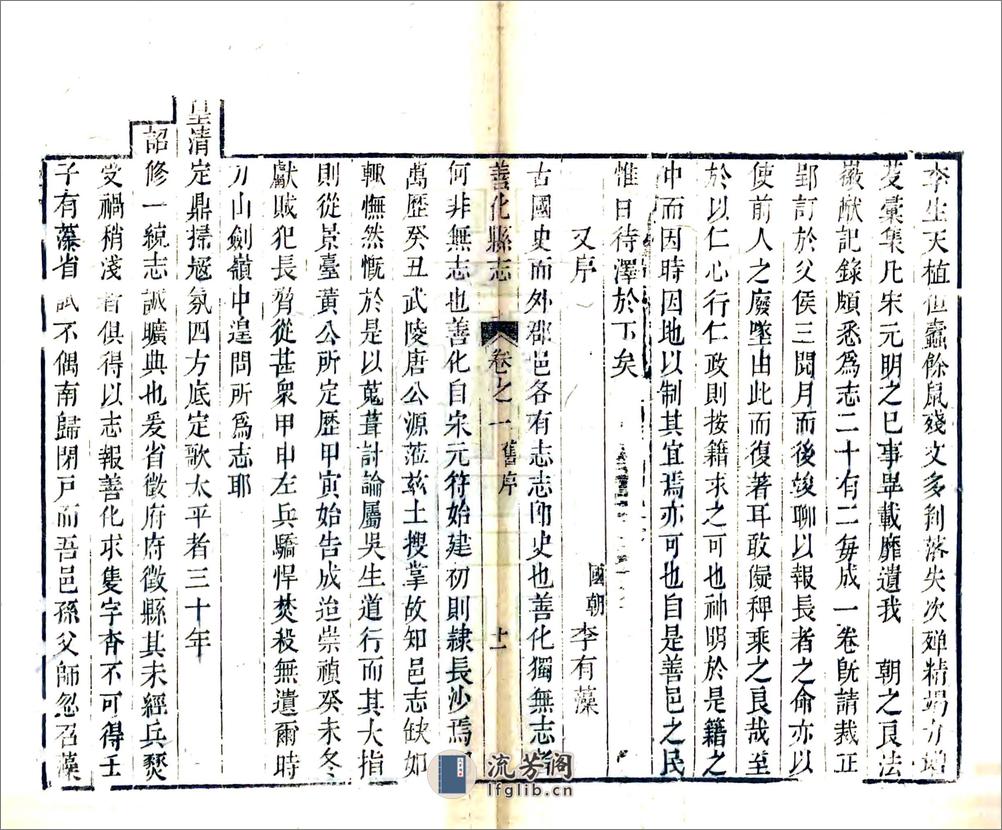 李生天植但蠹餘鼠殘文多剝落失次殫精竭力
芟彙集凡宋元明之巳事畢載靡遺我　朝之良法
徽猷記錄頗悉爲志二十有二每成一卷旣請裁正
郢訂於父侯三閱月而後竣聊以報長者之命亦以
使前人之廢墜由此而復著耳敢儗稗乘之良哉至
於以仁心行仁政則按籍求之可也神明於是籍之
中而因時因地以制其宜焉亦可也自是善邑之民
惟日待澤於下矣
又序
國朝　李有藻
古國史而外郡邑各有志志卽史也善化獨無志
善化縣志　卷之一　舊序　十一
何非無志也善化自宋元符始建初則隷長沙焉
萬歷癸丑武陵唐公源蒞兹土搜掌故知邑志缺如
輒憮然慨於是以蒐葺討論屬吳生道行而其大指
則從景臺黃公所定歷甲寅始告成迨崇禎癸未冬
獻賊犯長脅從甚衆甲申左兵驕悍焚殺無遺爾時
刀山劍嶺中遑問所爲志耶
皇清定鼎掃寇氛四方底定歌太平者三十年
詔修一統志誠曠典也爰省徵府府徵縣其未經兵燹
受禍稍淺者俱得以志報善化求隻字杳不可得壬
子有藻省試不偶南歸閉戸而吾邑孫父師忽召藻
流芳阁
lfglib.cn